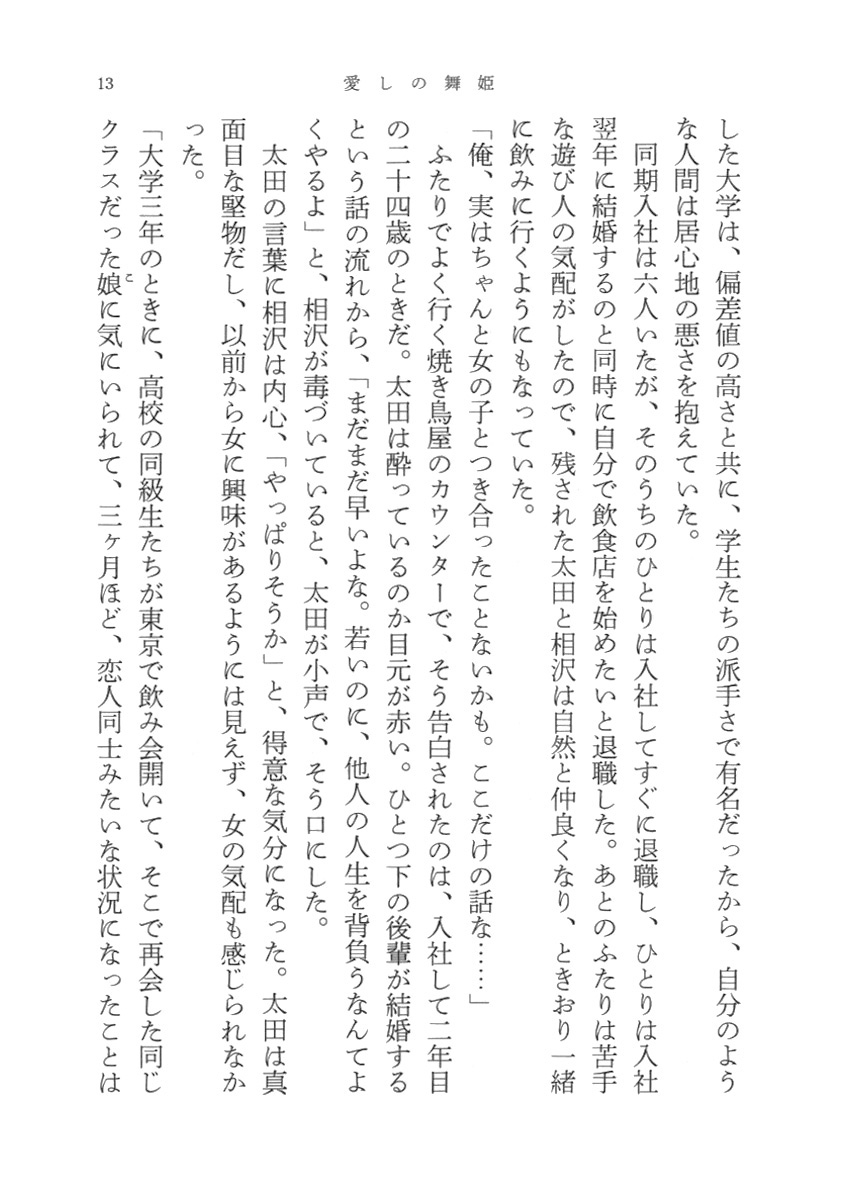 13
愛しの舞姫
した大学は、偏差値の高さと共に、学生たちの派手さで有名だったから、自分のよう
な人間は居心地の悪さを抱えていた。
同期入社は六人いたが、そのうちのひとりは入社してすぐに退職し、ひとりは入社
翌年に結婚するのと同時に自分で飲食店を始めたいと退職した。あとのふたりは苦手
な遊び人の気配がしたので、残された太田と相沢は自然と仲良くなり、ときおり一緒
に飲みに行くようにもなっていた。
「俺、実はちゃんと女の子とつき合ったことないかも。ここだけの話な……」
ふたりでよく行く焼き鳥屋のカウンターで、そう告白されたのは、入社して二年目
の二十四歳のときだ。太田は酔っているのか目元が赤い。ひとつ下の後輩が結婚する
という話の流れから、「まだまだ早いよな。若いのに、他人の人生を背負うなんてよ
くやるよ」と、相沢が毒づいていると、太田が小声で、そう口にした。
太田の言葉に相沢は内心、「やっぱりそうか」と、得意な気分になった。太田は真
面目な堅物だし、以前から女に興味があるようには見えず、女の気配も感じられなか
った。
「大学三年のときに、高校の同級生たちが東京で飲み会開いて、そこで再会した同じ
クラスだった娘に気にいられて、三ヶ月ほど、恋人同士みたいな状況になったことは
こ